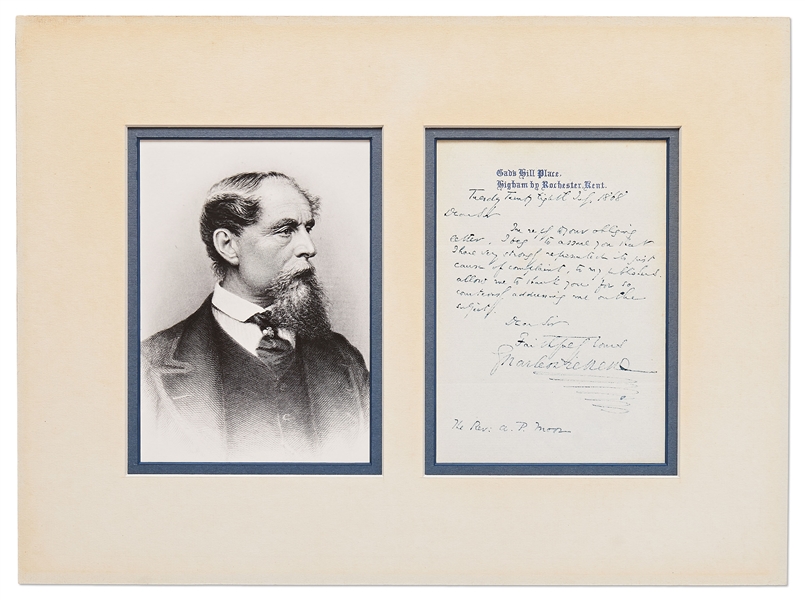 Gad's Hill Place.
Higham by Rochester, Kent.
Tuesday Twenty Eighth July 1868
Dear Sir
In reply to your obliging
letter, I beg to assure you that
I have very strongly represented the just
cause of complaint, to my publishers.
allow me to thank you for so
courteously addressing me on the
subject.
Dear Sir
Faithfully Yours
Charles Dickens
The Rev: A. P. Moor